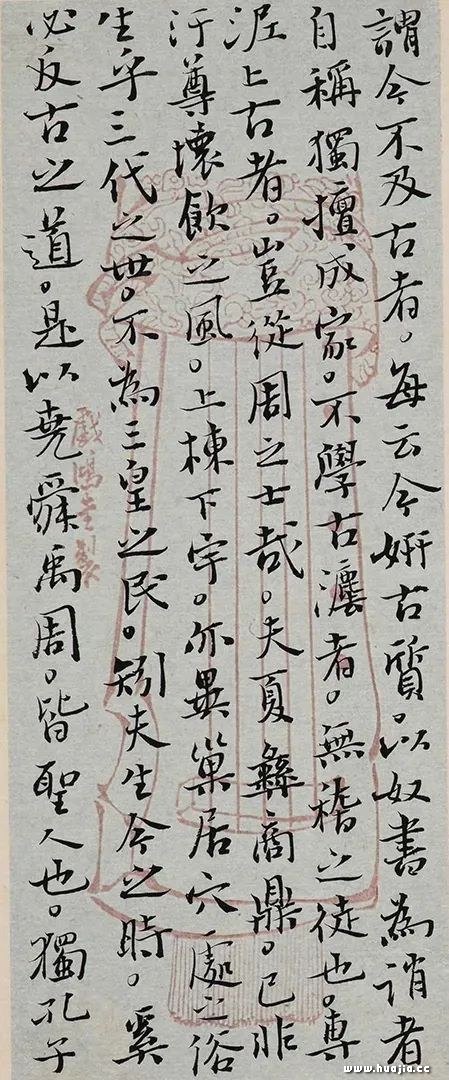 謂今不及古者。每云今妍古質。以奴書為誚者
自稱獨擅成家。不學古灋者。無稽之徒也。專
泥上古者。豈從周之士哉。夫夏彝商鼎。已非
汙尊壞飲之風。上棟下宇。亦異巢居穴處之俗
生乎三代之世。不為三皇之民。矧夫生今之時。奚
必反古之道。是以堯舜禹周。皆聖人也。獨孔子
戲鴻堂製
www.huajia.cc